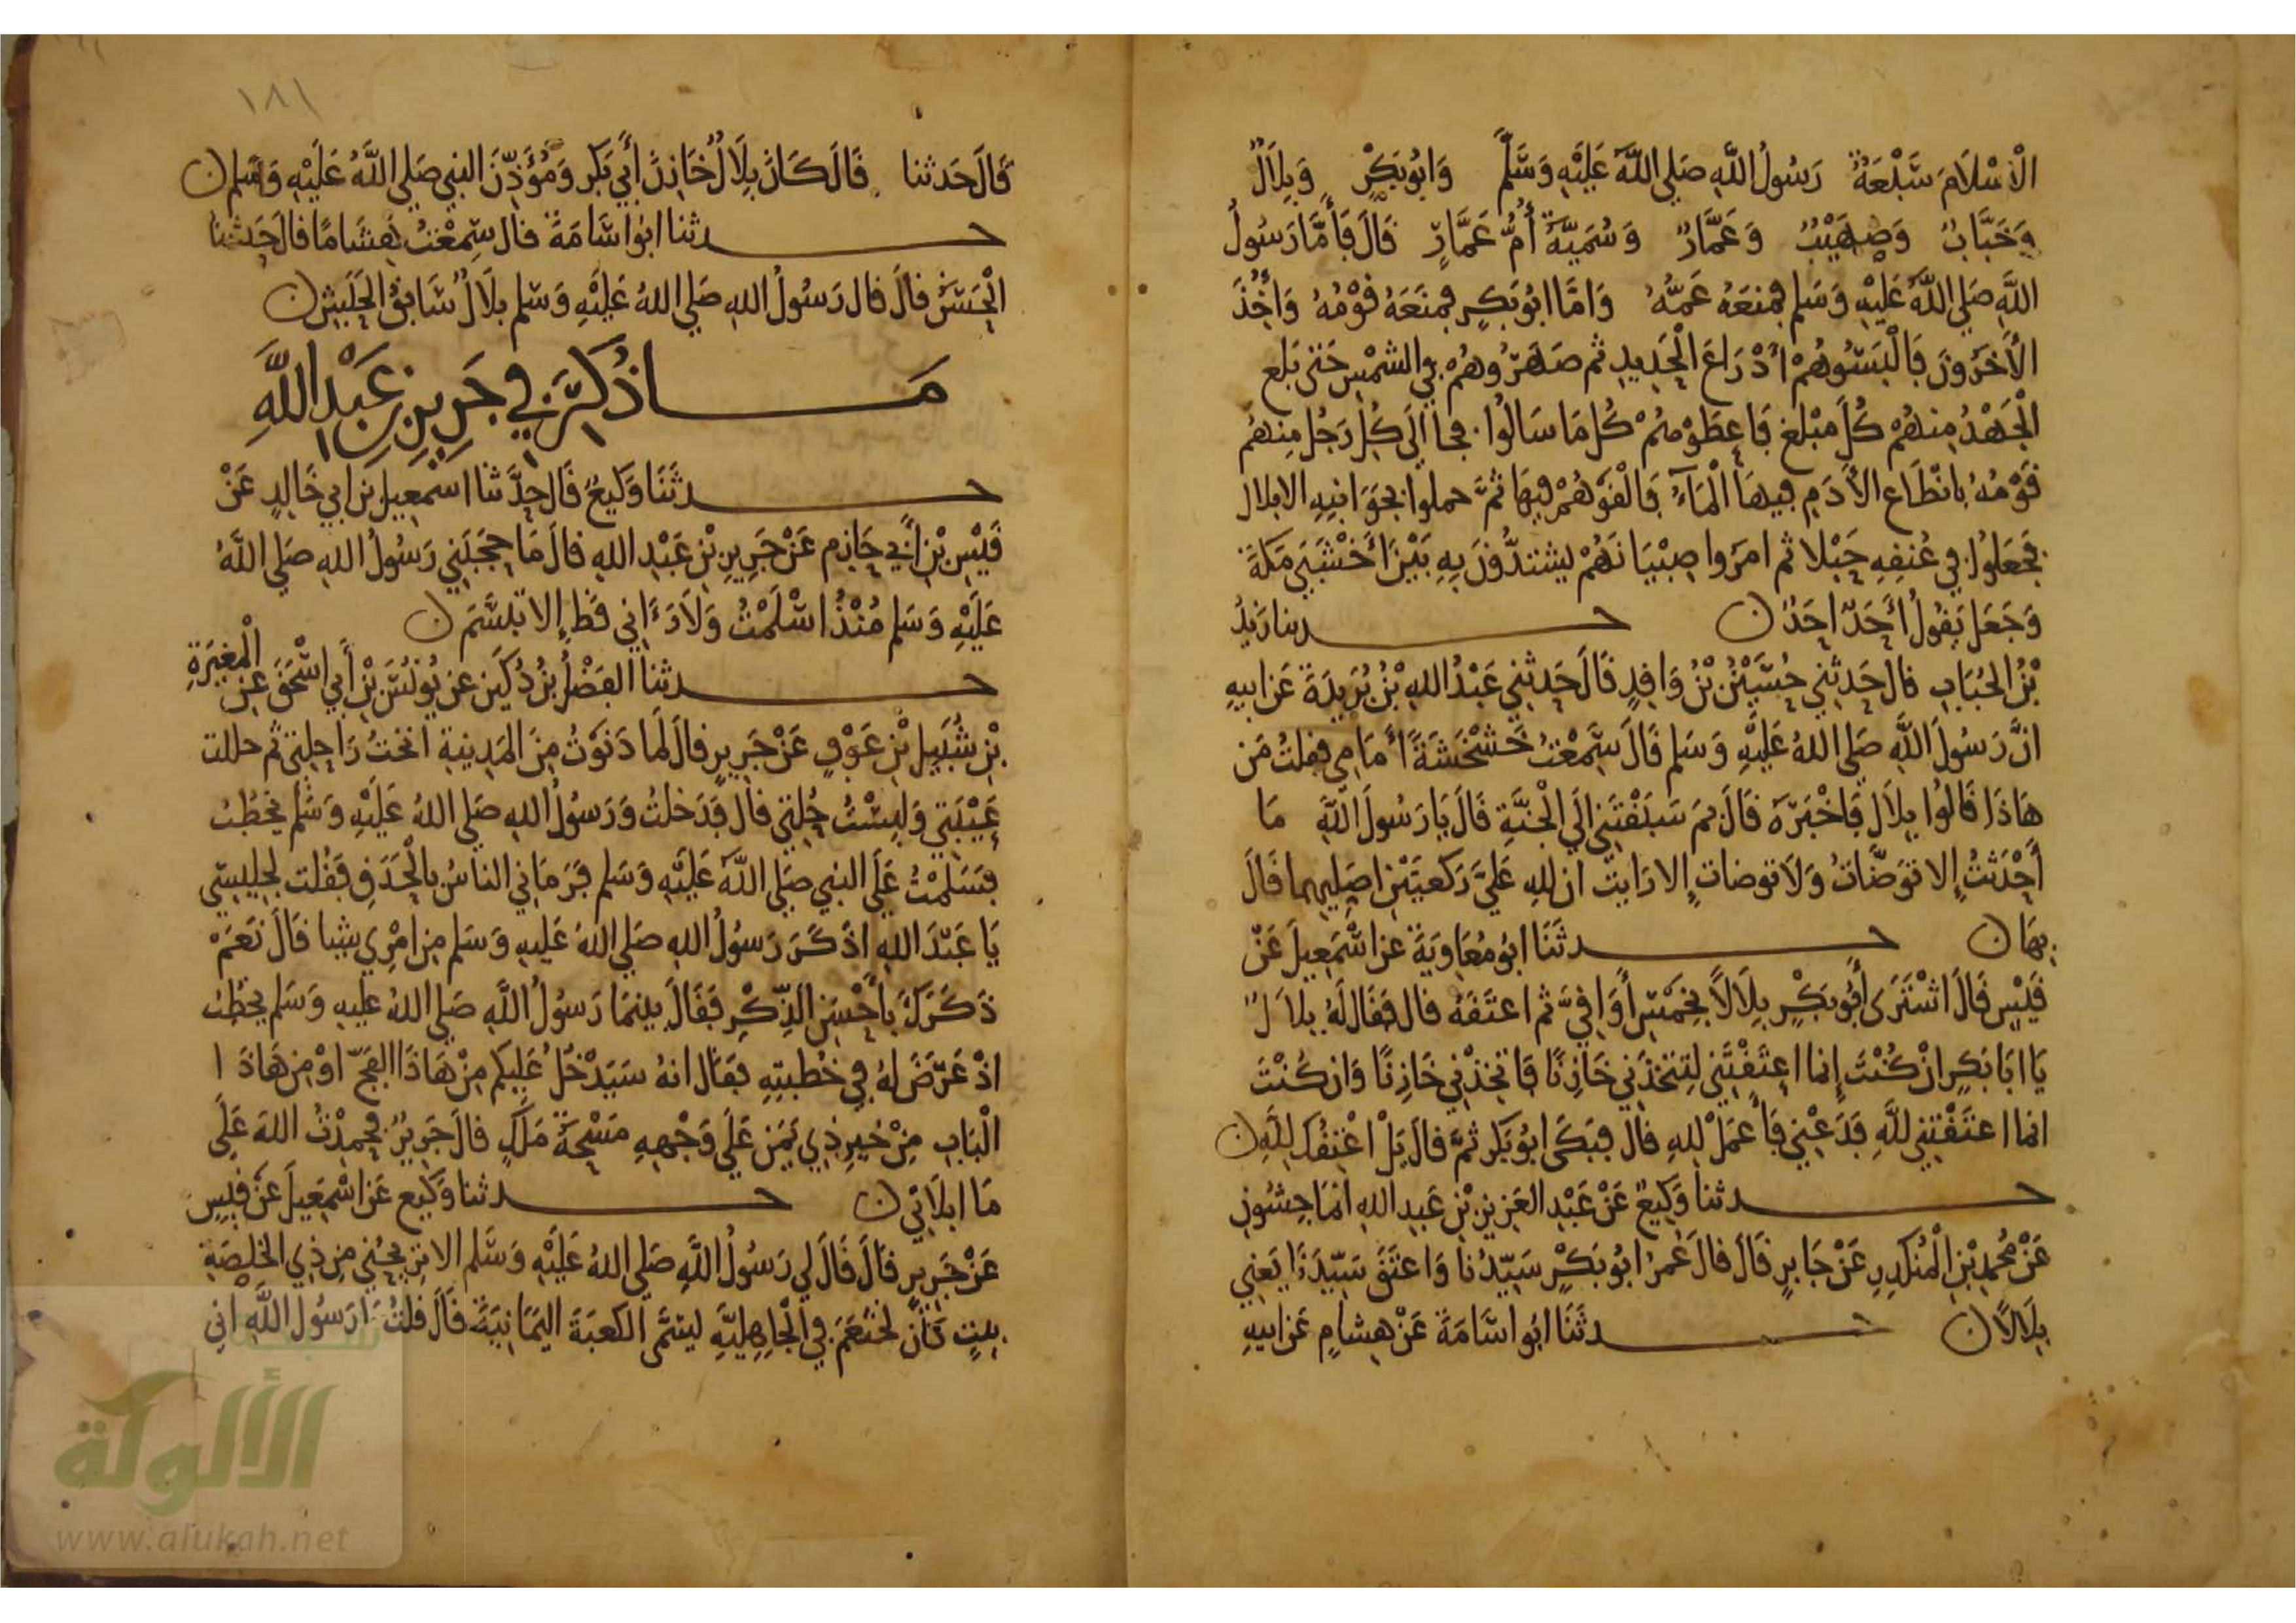 الْاسْلَامَ سَبْعَةٌ رَسُولُ اللَّهِ صَلى اللَّهُ عَلَيْهِ وَسَلَّم وَابُو بَكْرٍ وَبِلَالٌ
وَخَبَّابٌ وَصُهَيْبٌ وَعَمَّارٌ وَسُمَيَّةُ أُمُّ عَمَّارٍ قَالَ فَأَمَّا رَسُولُ
اللَّهِ صَلى اللَّهُ عَلَيْهِ وَسَلم فمنعَهُ عَمّهُ وَامَّا ابُو بَكرٍ فمنَعَهُ قَوْمُهُ وَاخِذَ
الْأَخَرُونَ فَالْبَسُوهُمْ أَدْرَاعَ الْحَدِيدِ ثم صَهَرُوهُمْ في الشمْسِ حَتى بَلغ
الْجَهْدُ مِنهُمْ كُلَّ مَبْلَغٍ فَاعطَوْهمُ كُل مَا سَالُوا فجا الَى كُلِ رَجُلٍ مِنهُم
قَوْمُهُ بانْطَاع الأَدَمِ فِيهَا الْمَاءُ فَالْقَوْهُمْ فِيهَا ثمَّ حملوا بجَوَانِبِهِ الا بلال
فجَعَلوُا فِي عُنقِهِ حَبْلا ثم امَرُوا صِبْيَانَهُمْ يشتدُّونَ بِهِ بَيْنَ أَخْشَبَي مَكةَ
وَجَعَلَ يَقُولُ أَحَدٌ احَدٌ ن حدثنا زَيدُ
بْنُ الحُبَابِ قال حَدثني حُسَيْنُ بْنُ وَاقِدٍ قَالَ حَدثني عَبْدُ اللهِ بْنُ بُرَيدَةَ عَن ابيهِ
انَّ رَسُولَ اللَّهِ صَلى اللهُ عَلَيْهِ وَسَلم قَالَ سَمعْتُ خَشْخَشَةً أَمَامي فقلتُ مَن
هَاذَا قَالُوا بِلاَل فَاخْبَرَهُ قَالَ بمَ سَبَقْتَني الَى الْجَنَّةِ قَالَ يَا رَسُولَ اللَّهِ مَا
أَحْدَثتُ إِلا تَوَضَّاتُ وَلَا توضات إِلا رَايت ان للهِ عَلىَّ رَكعَتَيْنِ اصَلِيهِما قَالَ
بهَا ن حدثَنَا ابُو مُعَاوِيَةَ عن اسْمَعِيلَ عَنْ
قَيْسٍ قَالَ اشْتَرَى أَبُو بَكْرٍ بِلَالاً بِخَمْسِ أَوَاقِيَّ ثم اعتَقَهُ قال فَقَالَ لَهُ بِلَالٌ
يَا ابَا بَكرٍ ان كُنْتَ إِنما اعتَقْتَنِي لِتتَّخذَني خَازِنًا فَاتخِذْني خَازِنًا وَان كُنْتَ
انما اعتَقْتَني للَّهِ فَدَعْنِي فَأَعمَلْ للهِ قال فبَكَى ابُو بَكر ثمَّ قالَ بَلْ اعْتِقُكَ لِلَّهِ ن
حدثنا وَكِيعٌ عَنْ عَبْدِ العَزِيزِ بْنِ عَبدِ اللهِ الماجِشُونِ
عَنْ مُحمدِ بْنِ الْمُنْكَدِرِ عَنْ جَابِرٍ قَالَ قالَ عُمَرُ ابُو بَكْرٍ سَيِّدُنا وَاعتَقَ سَيّدَنَا يَعني
بِلَالاً ن حدثَنَا ابُو اسَامَةَ عَنْ هِشامٍ عَن ابيهِ
١٨١
قَالَ حَدثنا قَالَ كَانَ بِلَالٌ خَازِنَ أَبي بَكر وَمُؤَذِّنَ النبي صَلى اللَّهُ عَلَيْهِ وَسَلم ن
حدثنا ابُو اسَامَةَ قال سَمِعْتُ هِشَامًا قالَ حَدثنا
الْحَسَنُ قالَ قال رَسُولُ اللهِ صَلى اللهُ عَلَيْهِ وَسَلم بِلَالٌ سَابِقُ الْحَبَشِ ن
مَا ذُكِرَ في جَرِيرِ بنِ عَبْدِ اللَّهِ
حدثَنَا وَكيعٌ قَال حدَّثنا اسمعِيل بن ابي خَالدٍ عَنْ
قَيْسِ بْنِ أَبي حَازِم عَنْ جَرِيرِ بْنِ عَبْدِ اللهِ قالَ مَا حَجَبَنِي رَسُولُ اللهِ صَلى اللَّهُ
عَلَيْهِ وَسَلم مُنْذُ اسْلَمْتُ وَلَا رَءَانِي قَط إِلا تَبَسَّمَ ن
حدثنا الفَضْلُ بنُ دُكَين عن يُونُسَ بْنِ أَبي اسْحَقَ عَن الْمغيَرةِ
بْنِ شُبَيلِ بْنِ عَوْفٍ عَنْ جَرِيرٍ قالَ لَما دَنَوْتُ مِنَ المَدِينةِ انَختُ رَاحِلتي ثم حللت
عَيْبَتِي وَلَبِسْتُ حُلتي قال فدَخلتُ وَرَسُولُ اللهِ صَلى اللهُ عَلَيْهِ وَسَلم يخطُبُ
فسَلمْتُ عَلَى النبي صَلى اللَّهُ عَلَيْهِ وَسَلم فرَمَاني الناسُ بالْحَدَقِ فَقُلت لجليسي
يَا عَبْدَ اللهِ اذَكَرَ رَسُولُ اللهِ صَلى اللهُ عَليهِ وَسَلم مِن امْرِي شيا قَالَ نَعَمْ
ذَكَرَكَ بِأَحْسَنِ الذِّكْرِ فَقَالَ بينمَا رَسُولُ اللَّهِ صَلى اللهُ عليهِ وَسَلم يخطُبُ
اذْ عَرَضَ لهُ فِي خُطبتِهِ فقَالَ انهُ سَيَدْخُلُ عَلَيكم مِنْ هَاذَا الفَجّ اوْ مِن هَاذَا
الْبَابِ مِنْ خَيرِ ذِي يَمَن عَلَى وَجْههِ مَسْحَةُ مَلَكٍ قالَ جَرِيرٌ فحمِدْتُ اللهَ عَلَى
مَا ابلَانِي ن حدثنا وَكيع عَن اسْمَعِيلَ عَنْ قَيْسٍ
عَنْ جَرِيرٍ قَالَ قَالَ لي رَسُولُ اللَّهِ صَلى اللهُ عَلَيْهِ وَسَلم الا تريحُني مِن ذِي الخلصَةِ
بيتٍ كَان لخَثعَمَ في الْجَاهِليَّةِ ليتمَّى الكعبَةَ اليَمَانِيَةَ قَالَ قلتُ يَا رَسُولَ اللَّهِ اني
الألوكة
www.alukah.net